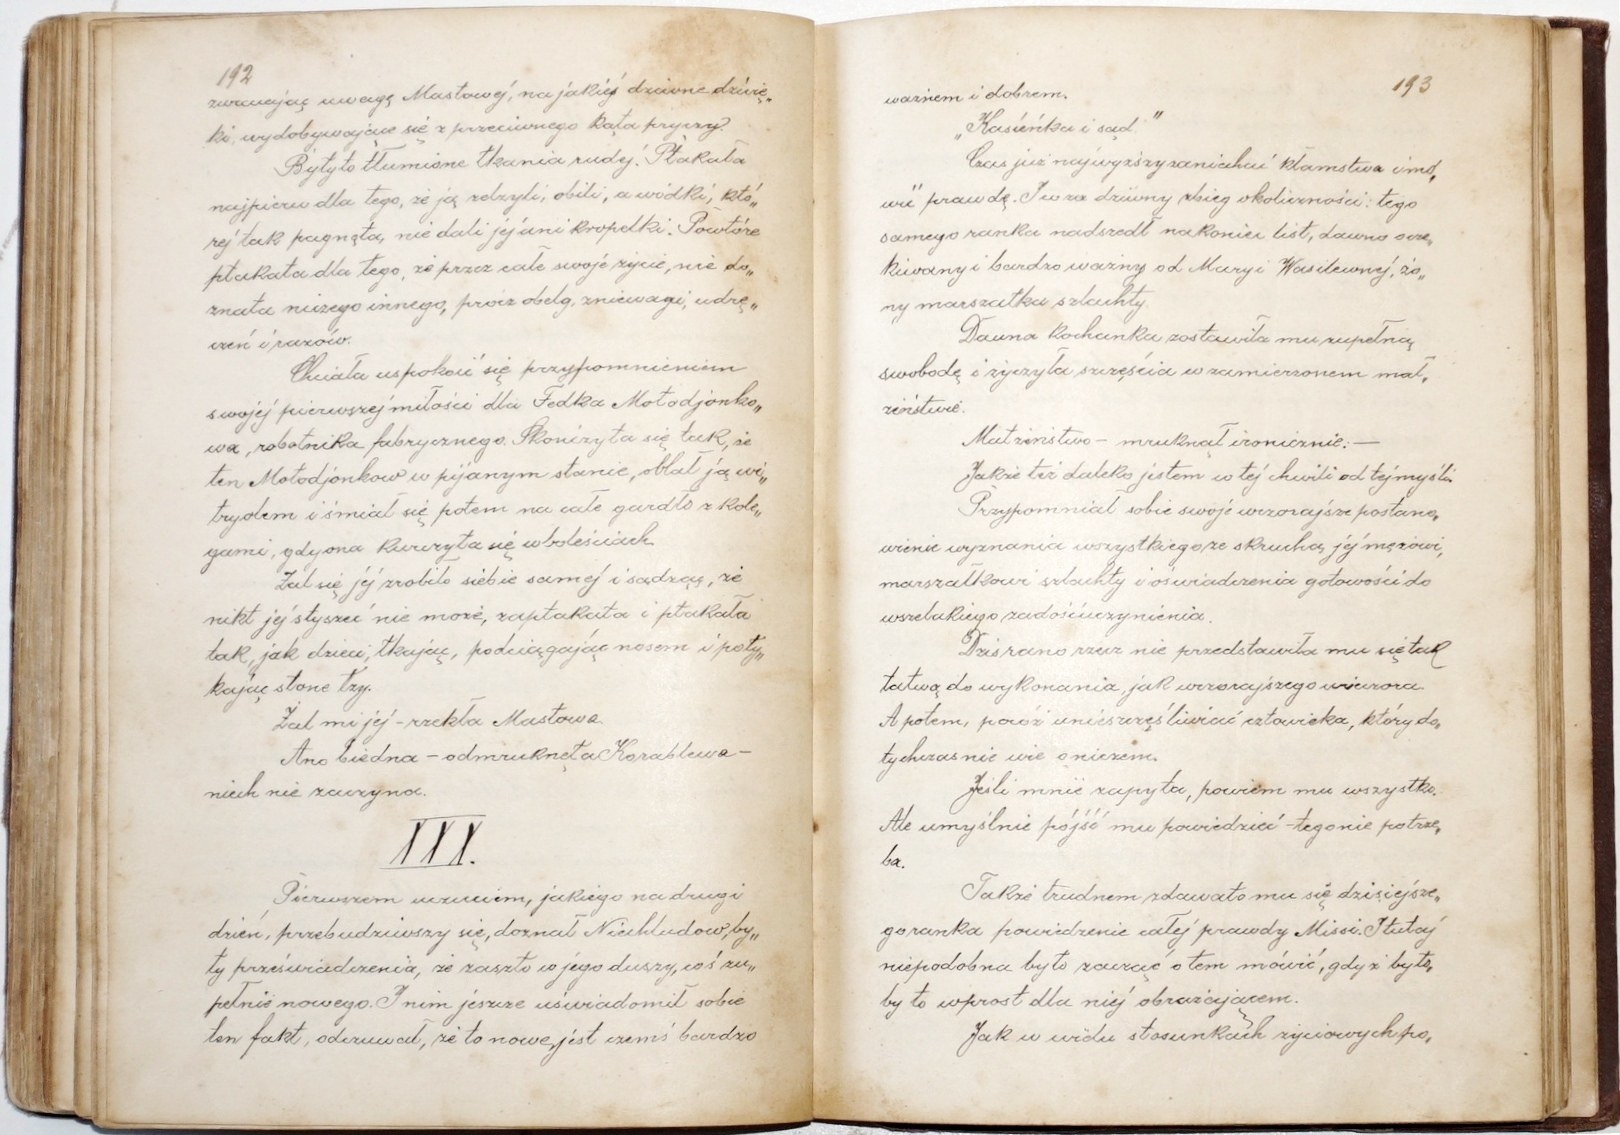 192
zwracając uwagę Masłowej, na jakieś dziwne dźwię„
ki, wydobywające się z przeciwnego kąta pryczy.
Byłyto tłumione łkania rudej. Płakała
najpierw dla tego, że ją zelżyli, obili, a wódki, któ„
rej tak pragnęła, nie dali jej ani kropelki. Powtóre
płakała dla tego, że przez całe swoje życie, nie do„
znała niczego innego, prócz obelg, zniewagi, udrę„
czeń i razów.
Chciała uspokoić się przypomnieniem
swojej pierwszej miłości dla Fedka Mołodjonko„
wa, robotnika fabrycznego. Skończyła się tak, że
ten Mołodjonkow w pijanym stanie, oblał ją wi„
tryolem i śmiał się potem na całe gardło z kole„
gami, gdy ona kurczyła się w boleściach.
Żal się jej zrobiło siebie samej i sądząc, że
nikt jej słyszeć nie może, zapłakała i płakała
tak, jak dzieci, łkając, podciągając nosem i poły„
kając słone łzy.
Żal mi jej – rzekła Masłowa.
Ano biedna – odmruknęła Korablewa –
niech nie zaczyna.
XXX.
Pierwszem uczuciem, jakiego na drugi
dzień, przebudziwszy się, doznał Niechludow, by„
ły przeświadczenia, że zaszło w jego duszy, coś zu„
pełnie nowego. I nim jeszcze uświadomił sobie
ten fakt, odczuwał, że to nowe, jest czemś bardzo
193
ważnem i dobrem.
„Kasieńka i sąd.”
Czas już najwyższy zaniechać kłamstwa i mó„
wić prawdę. I co za dziwny zbieg okoliczności: tego
samego ranka nadszedł nakoniec list, dawno ocze„
kiwany i bardzo ważny od Maryi Wasilewnej, żo„
ny marszałka szlachty.
Dawna kochanka zostawiła mu zupełną
swobodę i życzyła szczęścia w zamierzonem mał„
żeństwie.
Małżeństwo – mruknął ironicznie: –
Jakże też daleko jestem w tej chwili od tej myśli.
Przypomniał sobie swoje wczorajsze postano„
wienie wyznania wszystkiego ze skruchą jej mężowi,
marszałkowi szlachty i oswiadczenia gotowości do
wszelakiego zadośćuczynienia.
Dziś rano rzecz nie przedstawiła mu się tak
łatwą do wykonania, jak wczorajszego wieczora.
A potem, pocóż unieszczęśliwiać człowieka, który do„
tychczas nie wie o niczem.
Jeśli mnie zapyta, powiem mu wszystko.
Ale umyślnie pójść mu powiedzieć – tego nie potrze„
ba.
Także trudnem zdawało mu się dzisiejsze„
go ranka powiedzenie całej prawdy Missi. I tutaj
niepodobna było zacząć o tem mówić, gdyż było„
by to wprost dla niej obrażającem.
Jak w wielu stosunkach życiowych po„